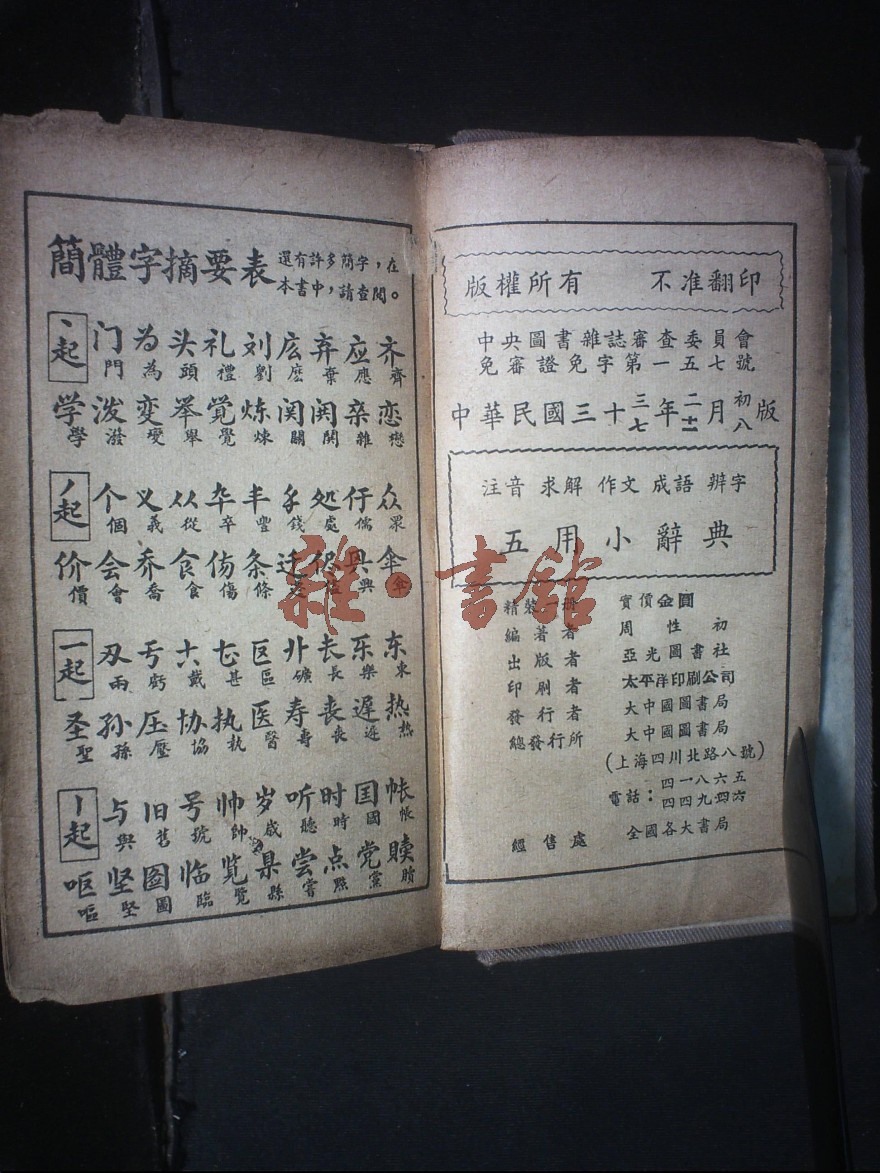 簡體字摘要表 還有許多簡字，在
本書中，請查閱。
丶起 门 为 头 礼 刘 庅 弃 应 齐
門 為 頭 禮 劉 麽 棄 應 齊
学 泼 变 举 觉 炼 関 亲 恋
學 潑 變 舉 覺 煉 關 戀
丿起 个 义 从 卆 丰 处 伩 众
個 義 從 卒 豐 錢 處 儒 眾
价 会 乔 食 伤 条 迁 兴 伞
價 會 喬 食 傷 條 興 傘
一起 刄 亏 七 区 长 乐 东
兩 虧 戴 甚 區 礦 長 樂 東
圣 孙 压 协 执 医 寿 丧 遲 热
聖 孫 壓 協 執 醫 壽 喪 遲 熱
丨起 与 旧 号 帅 岁 听 时 囯 帐
與 舊 號 帥 歲 聽 時 國 帳
呕 坚 图 临 览 県 尝 点 党 赎
嘔 堅 圖 臨 覽 縣 嘗 點 黨 贖
版權所有 不准翻印
中央圖書雜誌審查委員會
免審證免字第一五七號
中華民國三十三七年二十二月初八版
注音 求解 作文 成語 辨字
五用小辭典
精裝一冊 實價金圓
編著者 周性初
出版者 亞光圖書社
印刷者 太平洋印刷公司
發行者 大中國圖書局
總發行所 大中國圖書局
（上海四川北路八號）
電話：四一八六五
四四九四六
經售處 全國各大書局
雜·書館